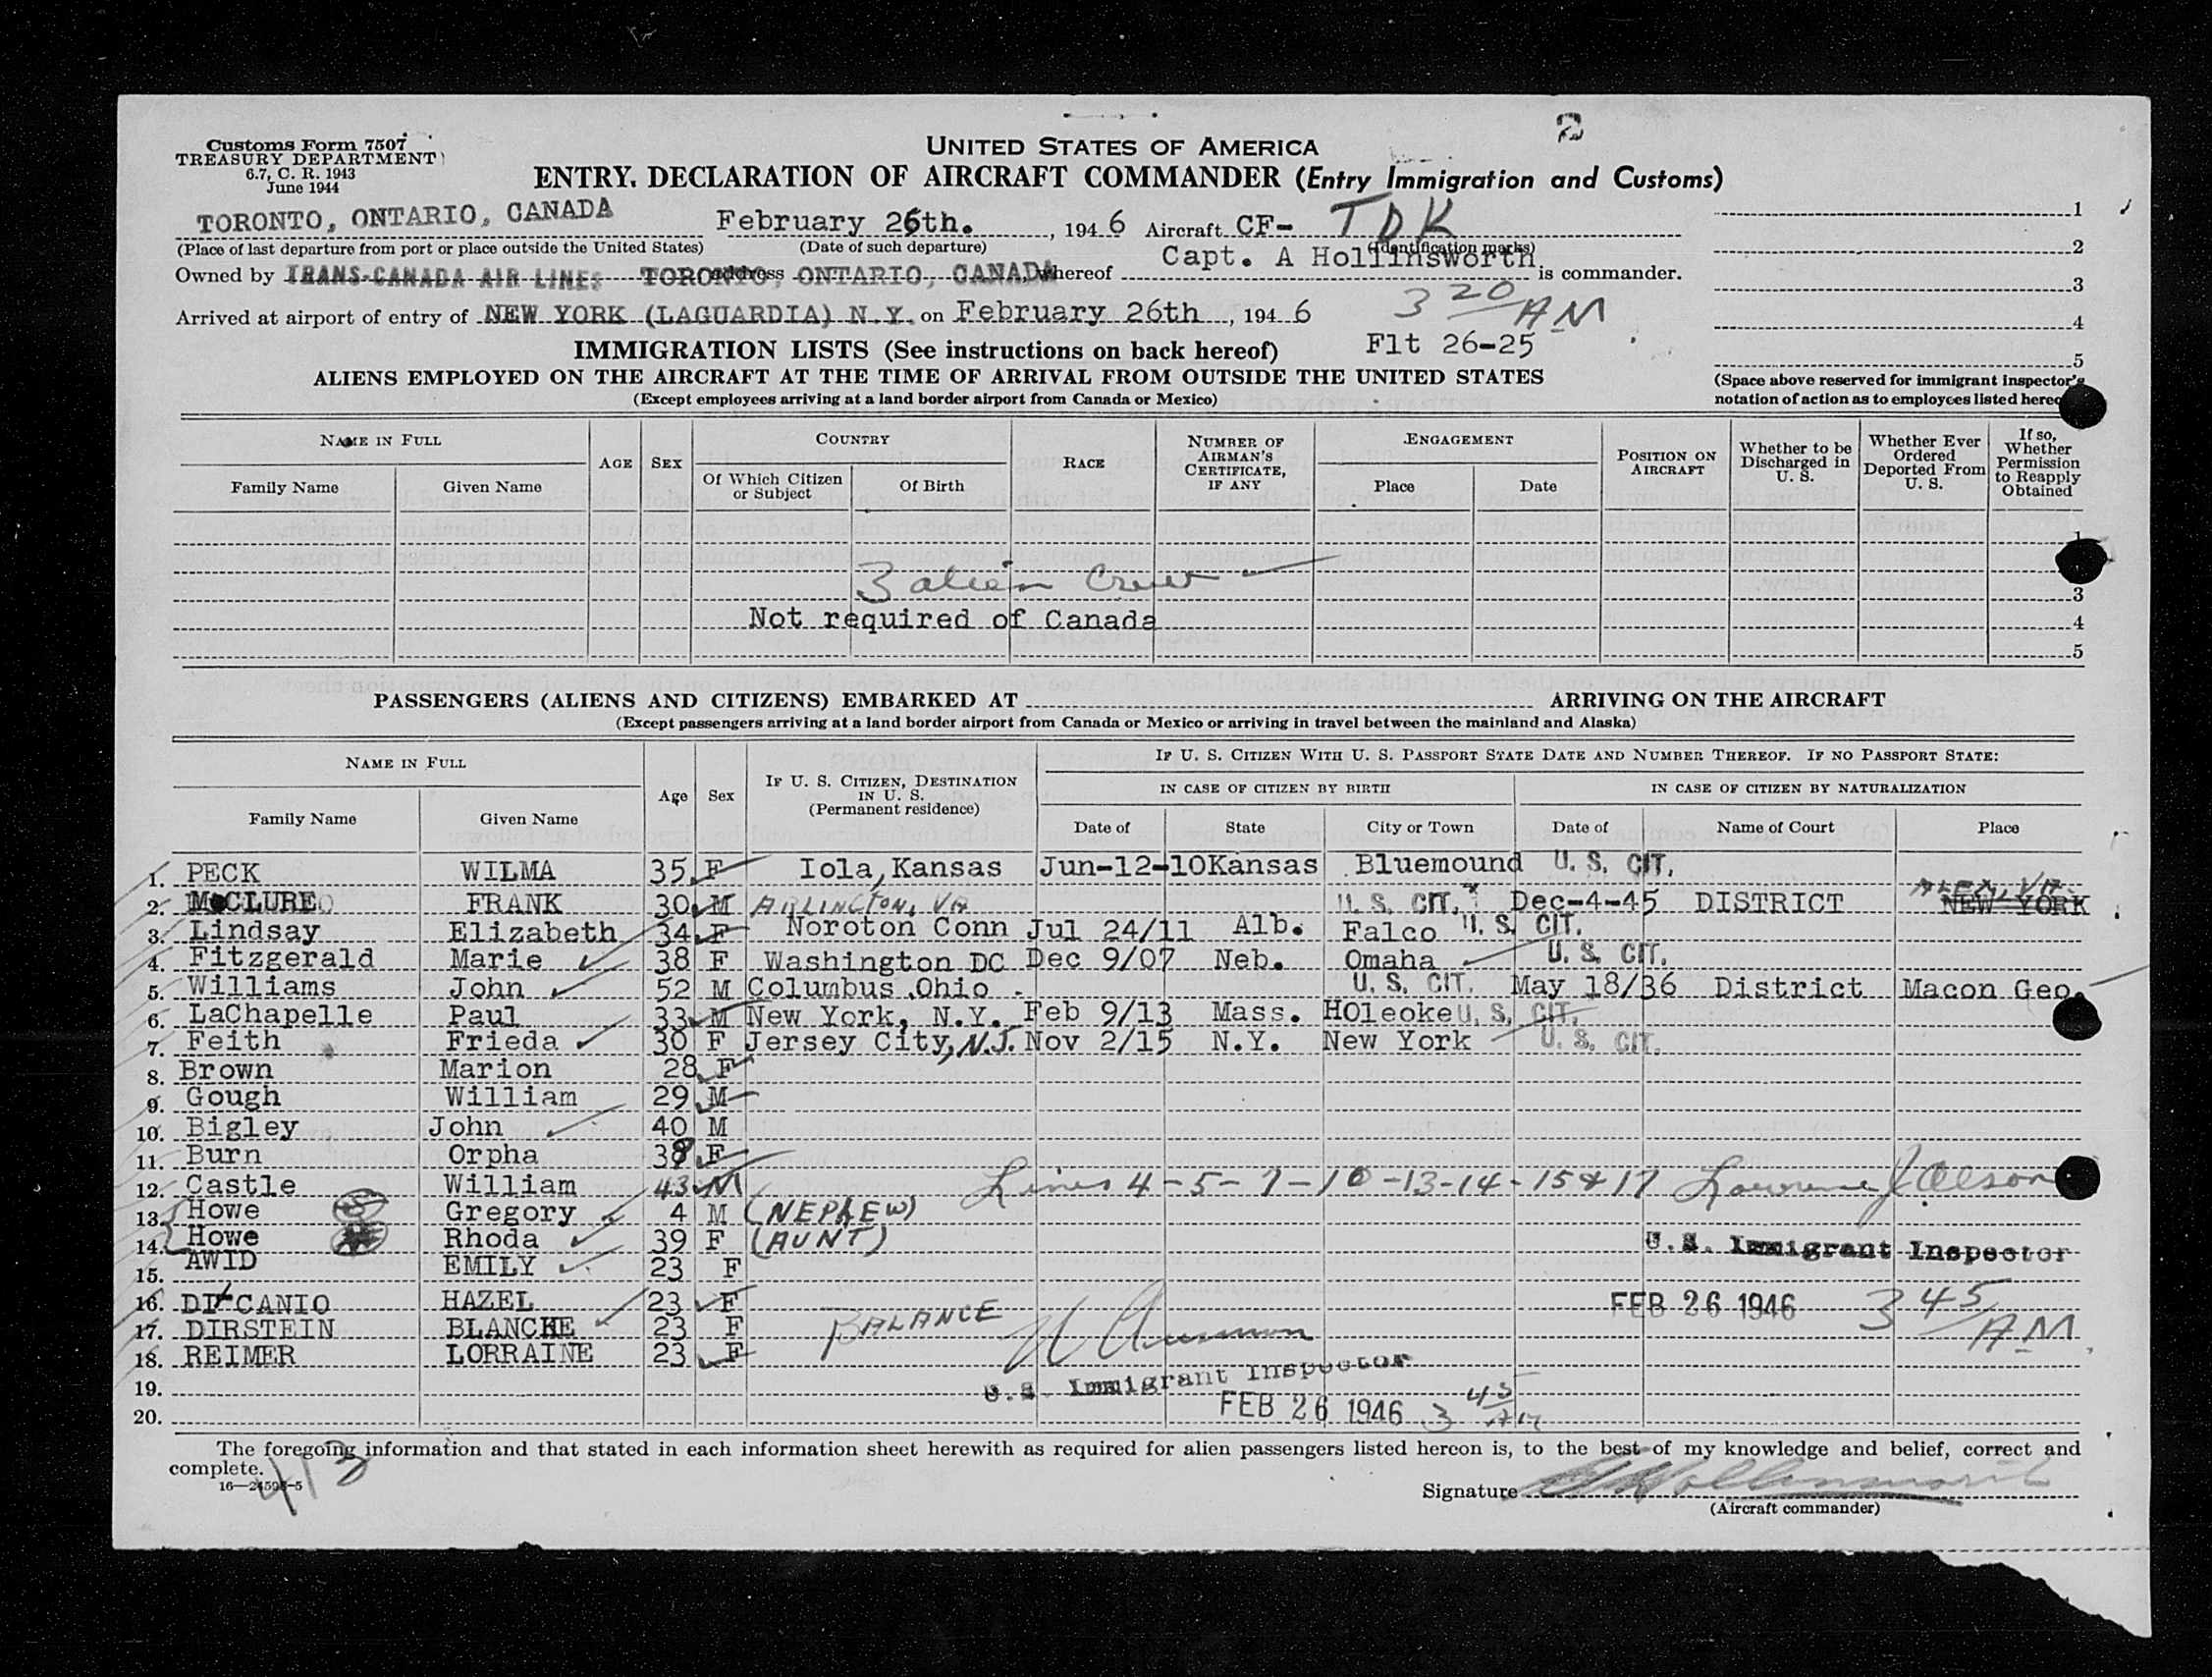 2
Customs Form 7507
TREASURY DEPARTMENT
6.7, C. R. 1943
June 1944
UNITED STATES OF AMERICA
ENTRY. DECLARATION OF AIRCRAFT COMMANDER (Entry Immigration and Customs)
TORONTO, ONTARIO, CANADA February 26th. , 194 6 Aircraft CF- TDK 1
(Place of last departure from port or place outside the United States) (Date of such departure) (Identification marks) 2
Owned by TRANS-CANADA AIR LINES TORONTO, address ONTARIO, CANADA whereof Capt. A Hollinsworth is commander. 3
Arrived at airport of entry of NEW YORK (LAGUARDIA) N.Y. on February 26th , 194 6 3 20 AM 4
IMMIGRATION LISTS (See instructions on back hereof) Flt 26-25 5
ALIENS EMPLOYED ON THE AIRCRAFT AT THE TIME OF ARRIVAL FROM OUTSIDE THE UNITED STATES (Space above reserved for immigrant inspector's
(Except employees arriving at a land border airport from Canada or Mexico) notation of action as to employees listed
NAME IN FULL AGE SEX COUNTRY RACE NUMBER OF AIRMAN'S CERTIFICATE, IF ANY ENGAGEMENT POSITION ON AIRCRAFT Whether to be Discharged in U. S. Whether Ever Ordered Deported From U. S. If so, Whether Permission to Reapply Obtained
Family Name Given Name Of Which Citizen or Subject Of Birth Place Date
1
3 alien Crew
3
Not required of Canada 4
5
PASSENGERS (ALIENS AND CITIZENS) EMBARKED AT ARRIVING ON THE AIRCRAFT
(Except passengers arriving at a land border airport from Canada or Mexico or arriving in travel between the mainland and Alaska)
NAME IN FULL Age Sex IF U. S. CITIZEN, DESTINATION IN U. S. (Permanent residence) IF U. S. CITIZEN WITH U. S. PASSPORT STATE DATE AND NUMBER THEREOF. IF NO PASSPORT STATE:
IN CASE OF CITIZEN BY BIRTH IN CASE OF CITIZEN BY NATURALIZATION
Family Name Given Name Date of State City or Town Date of Name of Court Place
1. PECK WILMA 35 F Iola, Kansas Jun-12-10 Kansas Bluemound U. S. CIT.
2. McCLURE FRANK 30 M ARLINGTON, VA U. S. CIT. Dec-4-45 DISTRICT ALEX, VA. NEW YORK
3. Lindsay Elizabeth 34 F Noroton Conn Jul 24/11 Alb. Falco U. S. CIT.
4. Fitzgerald Marie 38 F Washington DC Dec 9/07 Neb. Omaha U. S. CIT.
5. Williams John 52 M Columbus Ohio U. S. CIT. May 18/36 District Macon Geo.
6. LaChapelle Paul 33 M New York, N.Y. Feb 9/13 Mass. HOleoke U. S. CIT.
7. Feith Frieda 30 F Jersey City, N.J. Nov 2/15 N.Y. New York U. S. CIT.
8. Brown Marion 28 F
9. Gough William 29 M
10. Bigley John 40 M
11. Burn Orpha 38 F
12. Castle William 43 M Lines 4-5-7-10-13-14-15 & 17 Lawrence J Olson
13. Howe Gregory 4 M (NEPHEW)
14. Howe Rhoda 39 F (AUNT) U.S. Immigrant Inspector
15. AWID EMILY 23 F
16. DI CANIO HAZEL 23 F BALANCE FEB 26 1946 3 45 AM
17. DIRSTEIN BLANCHE 23 F
18. REIMER LORRAINE 23 F
U.S. Immigrant Inspector
19.
20. FEB 26 1946 3 45 AM
The foregoing information and that stated in each information sheet herewith as required for alien passengers listed hereon is, to the best of my knowledge and belief, correct and
complete. 413
16—24598-5 Signature A Hollinsworth
(Aircraft commander)